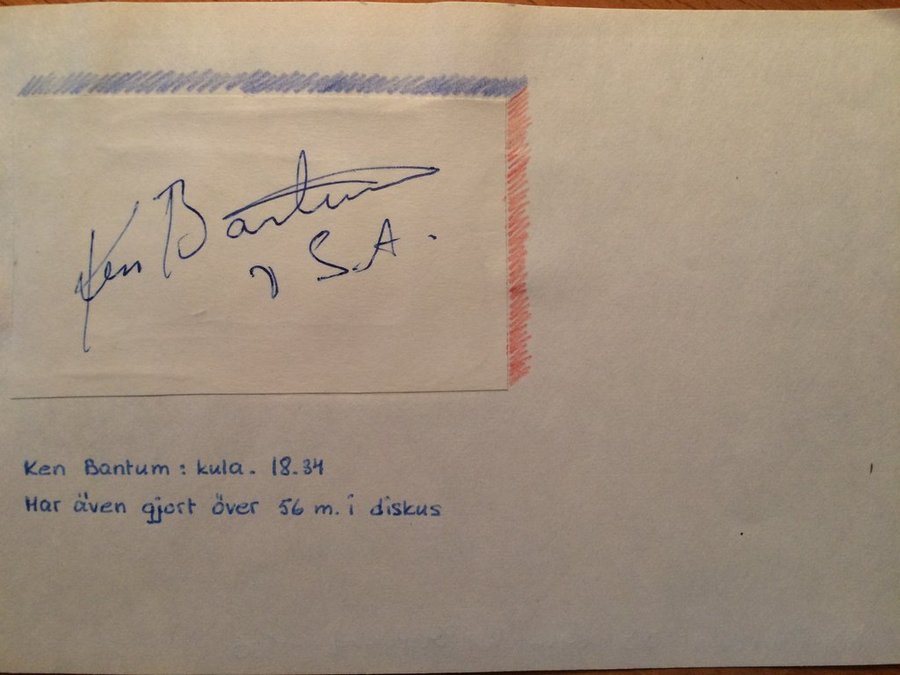 Ken Bantum
U S.A.
Ken Bantum: kula. 18.34
Har även gjort över 56 m. i diskus